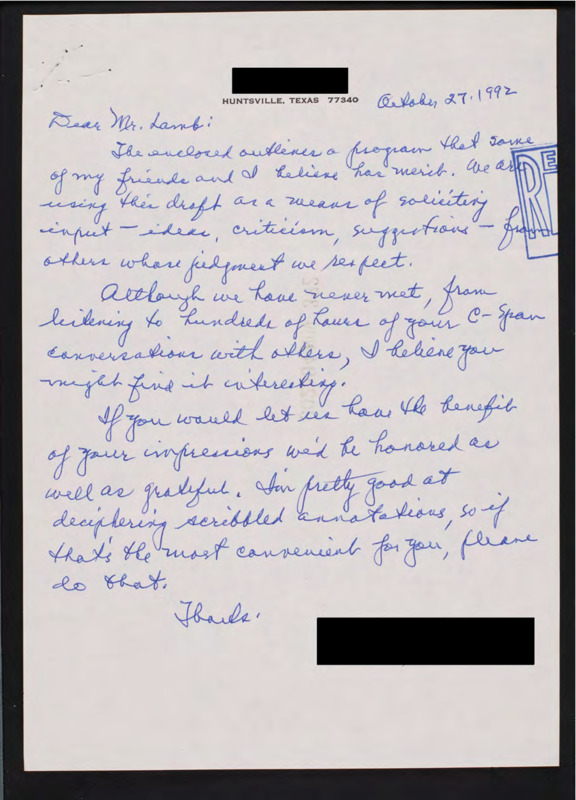 HUNTSVILLE, TEXAS 77340
October 27, 1992
Dear Mr. Lamb:
The enclosed outlines a program that some
of my friends and I believe has merit. We are
using this draft as a means of soliciting
input — ideas, criticism, suggestions — from
others whose judgment we respect.
Although we have never met, from
listening to hundreds of hours of your C-Span
conversations with others, I believe you
might find it interesting.
If you would let us have the benefit
of your impressions we'd be honored as
well as grateful. I'm pretty good at
deciphering scribbled annotations, so if
that's the most convenient for you, please
do that.
Thanks.